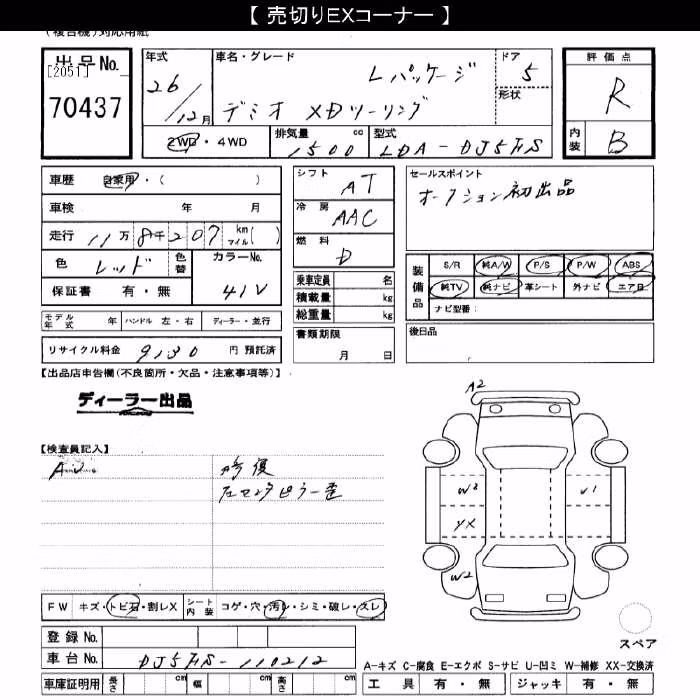 【 売切りEXコーナー 】
(複合機)対応用紙
出品No.
[2051]
70437
年式
26/12月
車名・グレード
Lパッケージ
デミオ XDツーリング
ドア
5
形状
2WD・4WD
排気量 cc
1500
型式
LDA-DJ5FS
評価点
R
内装
B
車歴 自家用・( )
車検 年 月
走行 11万8千207 km マイル( )
色 レッド 色替
カラーNo.
41V
保証書 有・無
モデル年式 年 ハンドル 左・右 ディーラー・並行
リサイクル料金 9130 円 預託済
シフト
AT
冷房
AAC
燃料
D
乗車定員 名
積載量 kg
総重量 kg
書類期限
月 日
セールスポイント
オークション初出品
装備品
S/R 純A/W P/S P/W ABS
純TV 純ナビ 革シート 外ナビ エアB
ナビ型番:
後日品
【出品店申告欄(不良箇所・欠品・注意事項等)】
ディーラー出品
【検査員記入】
修復
右センタピラー歪
A2
W2
U1
YX
W2
FW キズ・トビ石・割レX シート内装 コゲ・穴・汚レ・シミ・破レ・スレ
登録No.
車台No. DJ5FS-110212
車庫証明用 長さ cm 幅 cm 高さ cm
スペア
A-キズ C-腐食 E-エクボ S-サビ U-凹ミ W-補修 XX-交換済
工具 有・無 ジャッキ 有・無